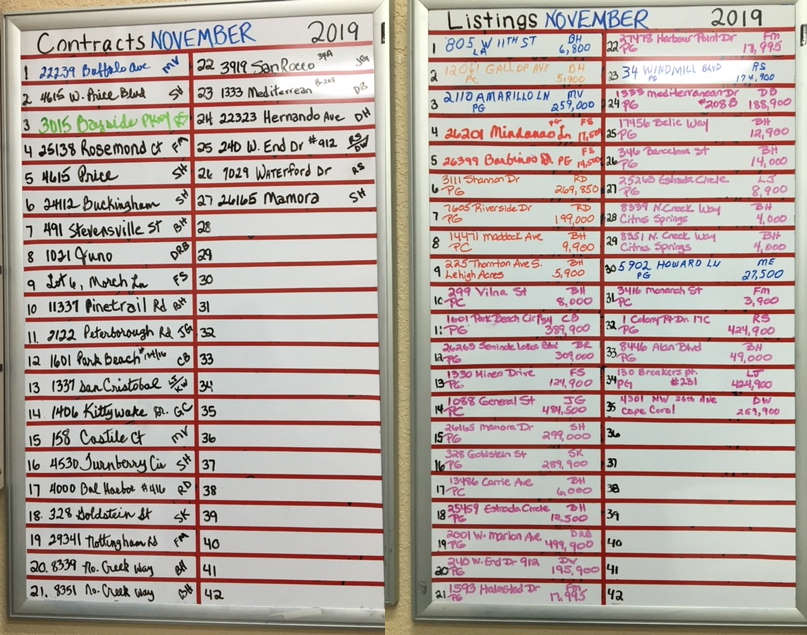 Contracts NOVEMBER 2019
1 22239 Buffalo Ave MV
2 4615 W. Price Blvd SV
3 3015 Bayside Pkwy
4 25138 Rosemond Ct FM
5 4615 Price SH
6 24112 Buckingham SH
7 491 Stevensville St BH
8 1021 Juno DRB
9 Lot 6, March Ln FS
10 11337 Pinetrail Rd BH
11. 2122 Peterborough Rd JG
12 1601 Park Beach CB
13 1337 San Cristobal
14 1406 Kittywake Dr. GC
15 158 Castile Ct MV
16 4530 Turnberry Cir SH
17 4000 Bal Harbor #416 RD
18. 328 Goldstein St SK
19 29341 Nottingham Rd FM
20. 8339 No. Creek Way BH
21. 8351 No. Creek Way BH
22 3919 San Rocco JG
23 1333 Mediterrean DB
24 22323 Hernando Ave DH
25 240 W. End Dr #912 RS/DW
26 7029 Waterford Dr RS
27 26165 Mamora SH
28
29
30
31
32
33
34
35
36
37
38
39
40
41
42
Listings NOVEMBER 2019
1 805 W 11TH ST BH
LA 6,800
2 12061 GALLOP AVE BH
PC 5,900
3 2110 AMARILLO LN MV
PG 259,000
4 26201 Mindanao Ln FS
5 26399 Barbinos PG FS
6 3111 Shannon Dr RD
PG 269,850
7 7605 Riverside Dr RD
PG 199,000
8 14471 Maddock Ave BH
PC 9,900
9 225 Thornton Ave S. BH
Lehigh Acres 5,900
10 299 Vilna St BH
PC 8,000
11. 1601 Park Beach Cir CB
PG 389,900
12. 26265 Seminole Lakes Blvd BR
PG 309,000
13 1330 Mineo Drive FS
PG 124,900
14 1088 General St JG
PC 484,500
15 26165 Mamora Dr SH
PG 299,000
16 328 Goldstein St SK
PG 289,900
17 13486 Carrie Ave BH
PC 6,000
18 25459 Estrada Circle BH
PG 12,500
19 2001 W. Marion Ave. DRB
PG 499,900
20 240 W. End Dr 912 DW
PG 195,900
21. 1593 Halmsted Dr FM
PG 17,995
22 27478 Harbour Point Dr FM
PG 17,995
23 34 WINDMILL BLVD RS
PG 174,900
24 1333 Mediterranean Dr DB
PG #208B 188,900
25 17456 Belic Way BH
PG 12,900
26 346 Barcelona St BH
PG 14,000
27 25263 Estrada Circle LJ
PG 8,900
28 8339 N. Creek Way BH
Citrus Springs 4,000
29 8351 N. Creek Way BH
Citrus Springs 4,000
30 5902 HOWARD LN ME
PG 27,500
31 3416 Monarch St FM
PC 3,900
32 1 Colony Pt Dr. 17C RS
PG 424,900
33 8446 Alan Blvd BH
PG 49,000
34 130 Breakers Pt. LJ
PG #231 424,900
35 4301 NW 36th Ave DW
Cape Coral 269,900
36
37
38
39
40
41
42